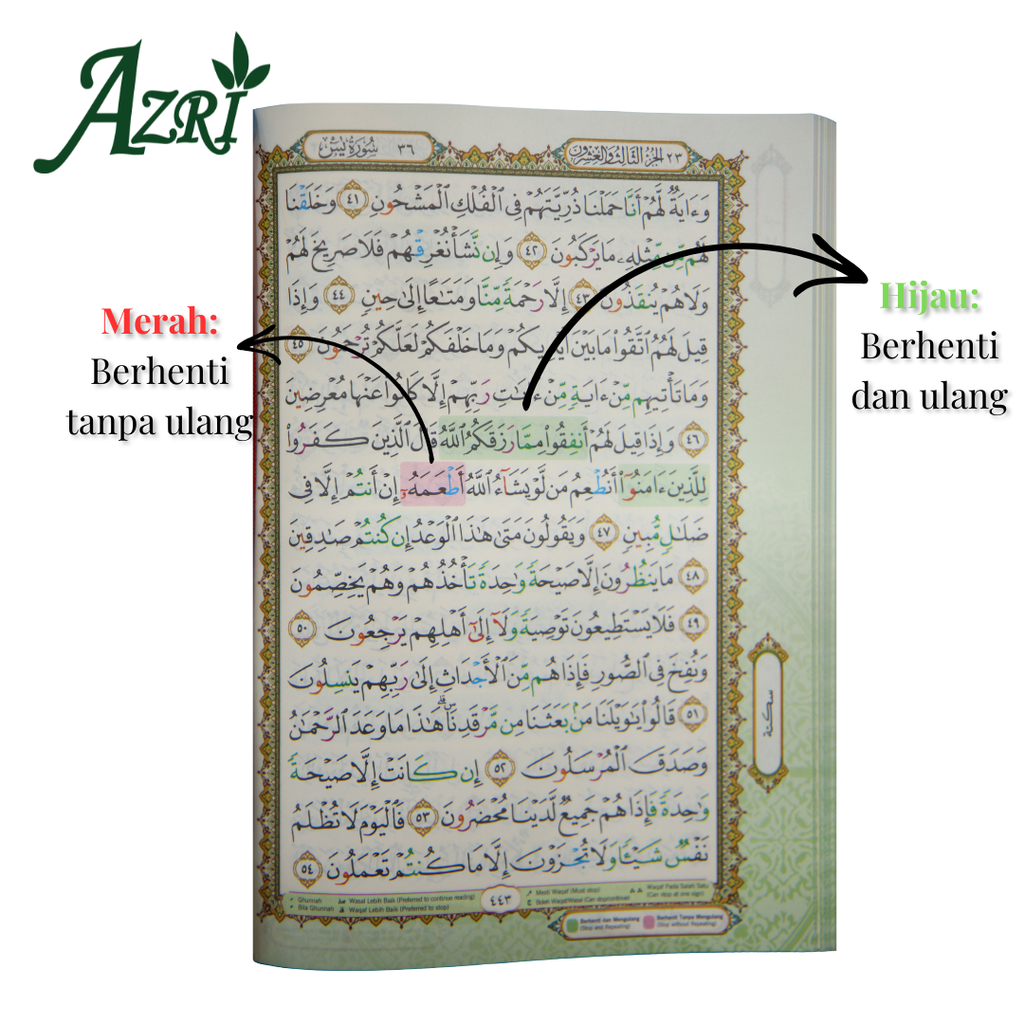 AZRI
سُورَةُ يسٓ ٣٦
٢٣ الجُزْءُ الثَّالِثُ وَالعِشْرُونَ
وَءَايَةٌ لَّهُمْ أَنَّا حَمَلْنَا ذُرِّيَّتَهُمْ فِى ٱلْفُلْكِ ٱلْمَشْحُونِ ٤١ وَخَلَقْنَا
لَهُم مِّن مِّثْلِهِۦ مَا يَرْكَبُونَ ٤٢ وَإِن نَّشَأْ نُغْرِقْهُمْ فَلَا صَرِيخَ لَهُمْ
وَلَا هُمْ يُنقَذُونَ ٤٣ إِلَّا رَحْمَةً مِّنَّا وَمَتَـٰعًا إِلَىٰ حِينٍ ٤٤ وَإِذَا
قِيلَ لَهُمُ ٱتَّقُوا۟ مَا بَيْنَ أَيْدِيكُمْ وَمَا خَلْفَكُمْ لَعَلَّكُمْ تُرْحَمُونَ ٤٥
وَمَا تَأْتِيهِم مِّنْ ءَايَةٍ مِّنْ ءَايَـٰتِ رَبِّهِمْ إِلَّا كَانُوا۟ عَنْهَا مُعْرِضِينَ
٤٦ وَإِذَا قِيلَ لَهُمْ أَنفِقُوا۟ مِمَّا رَزَقَكُمُ ٱللَّهُ قَالَ ٱلَّذِينَ كَفَرُوا۟
لِلَّذِينَ ءَامَنُوٓا۟ أَنُطْعِمُ مَن لَّوْ يَشَآءُ ٱللَّهُ أَطْعَمَهُۥٓ إِنْ أَنتُمْ إِلَّا فِى
ضَلَـٰلٍ مُّبِينٍ ٤٧ وَيَقُولُونَ مَتَىٰ هَـٰذَا ٱلْوَعْدُ إِن كُنتُمْ صَـٰدِقِينَ
٤٨ مَا يَنظُرُونَ إِلَّا صَيْحَةً وَٰحِدَةً تَأْخُذُهُمْ وَهُمْ يَخِصِّمُونَ
٤٩ فَلَا يَسْتَطِيعُونَ تَوْصِيَةً وَلَآ إِلَىٰٓ أَهْلِهِمْ يَرْجِعُونَ ٥٠
وَنُفِخَ فِى ٱلصُّورِ فَإِذَا هُم مِّنَ ٱلْأَجْدَاثِ إِلَىٰ رَبِّهِمْ يَنسِلُونَ
٥١ قَالُوا۟ يَـٰوَيْلَنَا مَنۢ بَعَثَنَا مِن مَّرْقَدِنَا ۜ ۗ هَـٰذَا مَا وَعَدَ ٱلرَّحْمَـٰنُ
وَصَدَقَ ٱلْمُرْسَلُونَ ٥٢ إِن كَانَتْ إِلَّا صَيْحَةً
وَٰحِدَةً فَإِذَا هُمْ جَمِيعٌ لَّدَيْنَا مُحْضَرُونَ ٥٣ فَٱلْيَوْمَ لَا تُظْلَمُ
نَفْسٌ شَيْـًٔا وَلَا تُجْزَوْنَ إِلَّا مَا كُنتُمْ تَعْمَلُونَ ٥٤
سكتة
Merah:
Berhenti
tanpa ulang
Hijau:
Berhenti
dan ulang
Ghunnah
Bila Ghunnah
Wasal Lebih Baik (Preferred to continue reading)
Waqaf Lebih Baik (Preferred to stop)
٤٤٣
Mesti Waqaf (Must stop)
Waqaf Pada Salah Satu
(Can stop at one sign)
Berhenti dan Mengulang
(Stop and Repeating)
Berhenti Tanpa Mengulang
(Stop without Repeating)